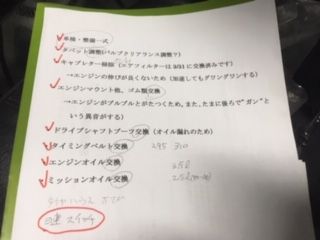 車検・整備一式
タペット調整(バルブクリアランス調整?)
キャブレター掃除(エアフィルターは 3/31 に交換済みです)
→エンジンの伸びが良くないため(加速してもグワングワンする)
エンジンマウント他、ゴム類交換
→エンジンがブルブルとがたつくため、また、たまに後ろで"ガン"と
いう異音がする)
ドライブシャフトブーツ交換(オイル漏れのため)
タイミングベルト交換 295 310
エンジンオイル交換 25ℓ
ミッションオイル交換 2.5ℓ
スイッチ